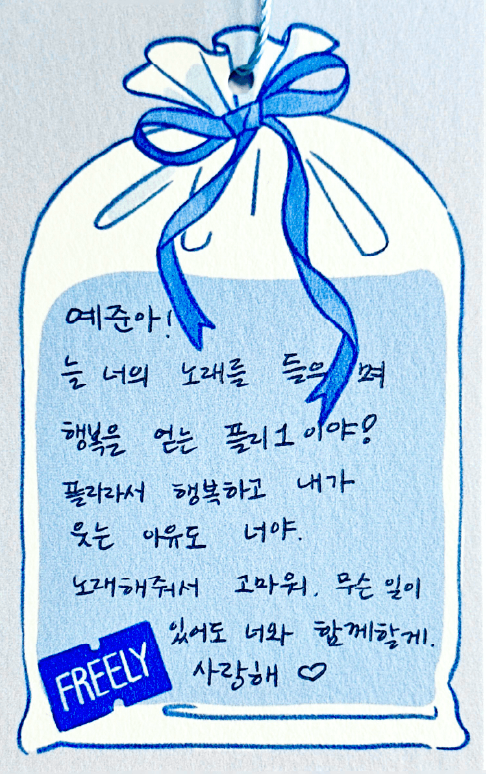 예준아!
늘 너의 노래를 들으며
행복을 얻는 플리1이야?
플리라서 행복하고 내가
웃는 이유도 너야.
노래해줘서 고마워. 무슨 일이
있어도 너와 함께할게.
사랑해 ♡
FREELY